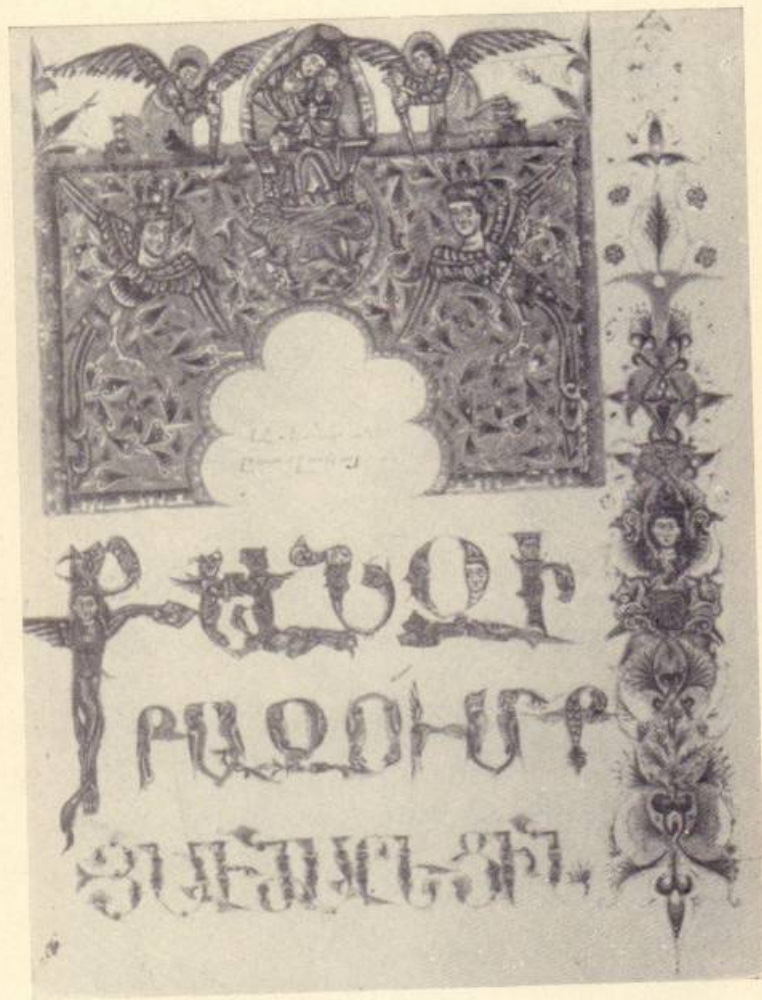 ՔԱՆԶԻ
ԲԱԶՈՒՄՔ
ՅԱՒԺԱՐԵՑԻՆ